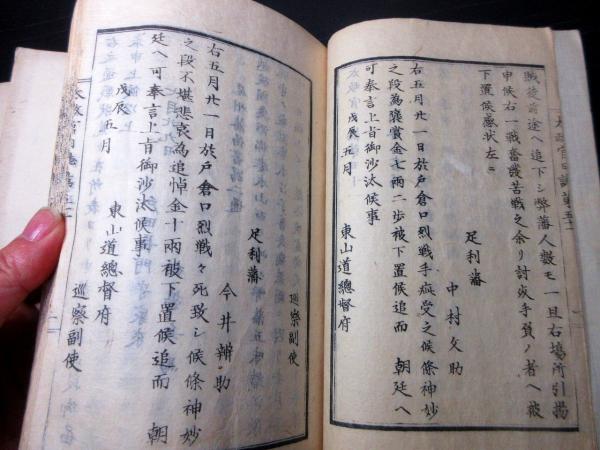 太政官日誌第五
賊後方途へ追下シ弊藩人数モ一旦右場所引揚
申候右一戦奮發苦戦之余リ討死手負ノ者へ被
下置候感状左ニ
足利藩
中村文助
右五月廿一日於戸倉口烈戦手疵受之候條神妙
之段為褒賞金七両二歩被下置候追而 朝廷へ
可奉言上旨御沙汰候事
戊辰五月
東山道總督府
巡察副使
足利藩
今井辨助
右五月廿一日於戸倉口烈戦々死致シ候條神妙
之段不堪悲哀為追悼金十両被下置候追而 朝
廷へ可奉言上旨御沙汰候事
戊辰五月
東山道總督府
巡察副使
太政官日誌第五